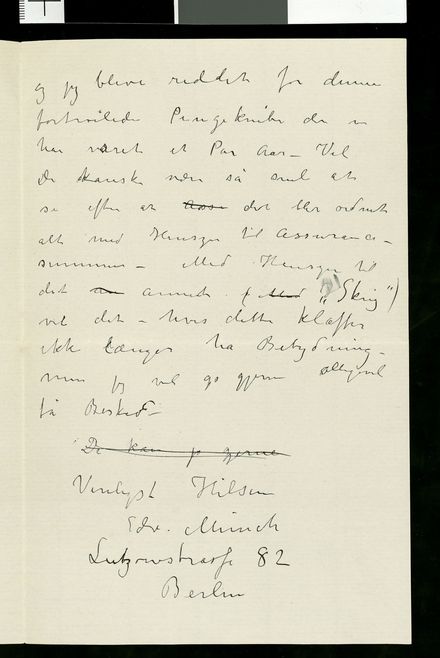 og jeg blive reddet for denne
fortvilede Pengeknibe der nu
har været et Par Aar – Vil
De kanske være så snil at
se efter at det blir ordnet
alt med Hensyn til Assurance-
summen – Med Hensyn til
det annet ( „Skrig“)
vil det – hvis dette klaffer
ikke længer ha Betydning –
men jeg vil go gjerne alligevel
få Besked –
De kan jo gjerne
Venligst Hilsen
Edv. Munch
Lutzowstrasse 82
Berlin